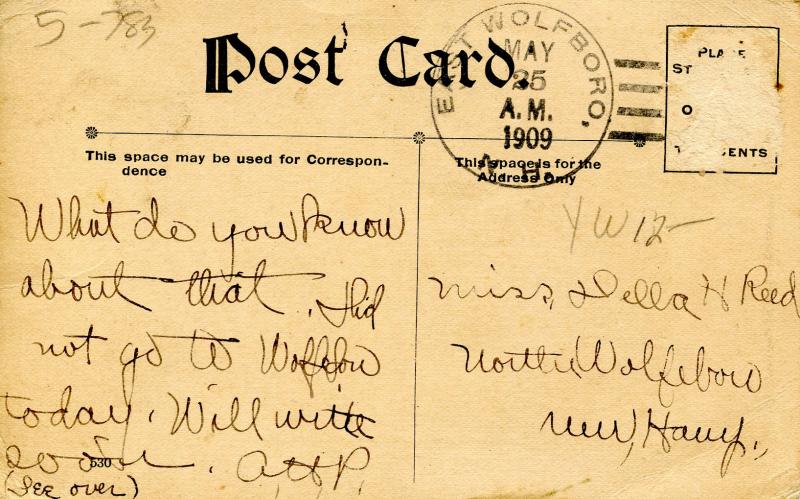 5-783
Post Card.
EAST WOLFBORO,
MAY
25
A.M.
1909
N.H.
PLACE
ST
O
T CENTS
This space may be used for Correspon-
dence
This space is for the
Address Only
YW12-
What do you know
about that. Did
not go to Wolfboro
today. Will write
soon. A.H.P.
(See over)
530
Miss, Della H Reed
North Wolfeboro
New, Hamp.,